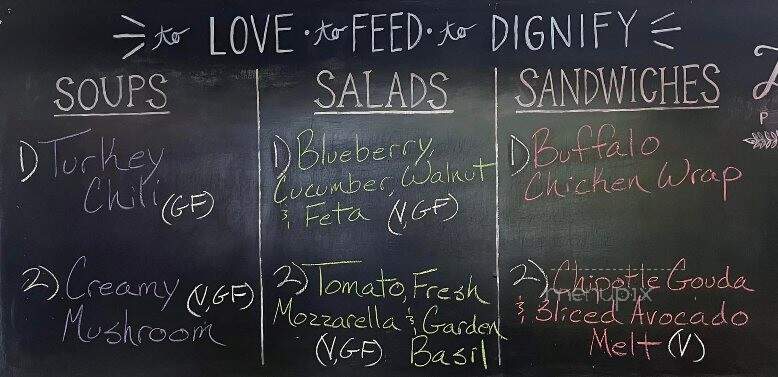 to LOVE · to FEED · to DIGNIFY
SOUPS
1) Turkey
Chili (GF)
2) Creamy (V,GF)
Mushroom
SALADS
1) Blueberry,
Cucumber, Walnut
& Feta (V,GF)
2) Tomato, Fresh
Mozzarella & Garden
(V,GF) Basil
SANDWICHES
1) Buffalo
Chicken Wrap
2) Chipotle Gouda
& Sliced Avocado
Melt (V)
menupix